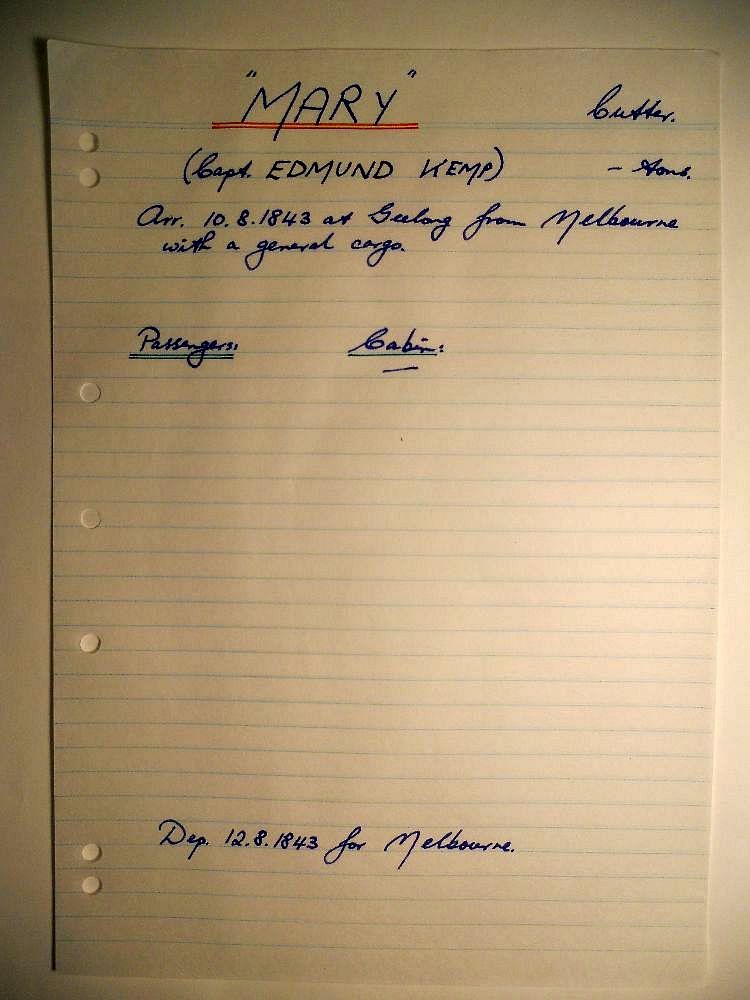 "MARY" Cutter.
(Capt. EDMUND KEMP) - tons.
Arr. 10.8.1843 at Geelong from Melbourne
with a general cargo.
Passengers: Cabin:
—
Dep. 12.8.1843 for Melbourne.